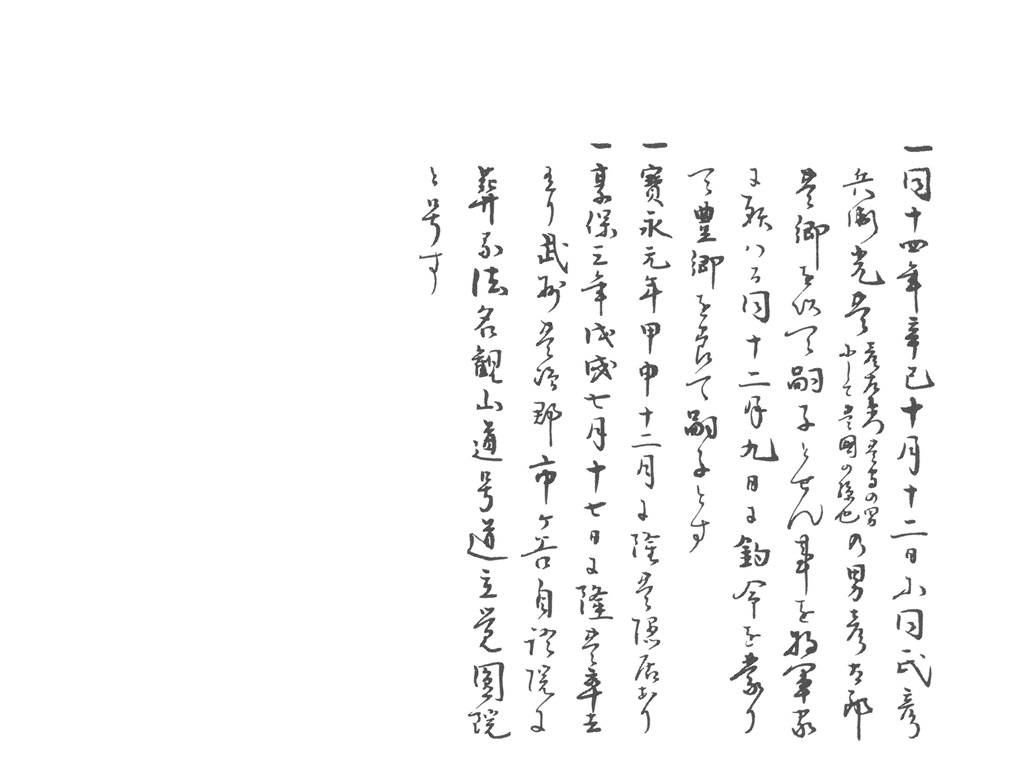 一同十四年辛巳十月十二日小同氏彦
兵衛光豊彦左衛門豊高の男にして豊國の孫也の男彦太郎
豊郷を以て嗣子とせん事を将軍家
に願ハる同十二月九日に鈞命を蒙り
て豊郷を養て嗣子とす
一寶永元年甲申十二月に隆豊隠居あり
一享保三年戊戌七月十七日に隆豊卒去
あり武州豊嶋郡市ヶ谷自證院に
葬る法名観山道号道立覚圓院
と号す